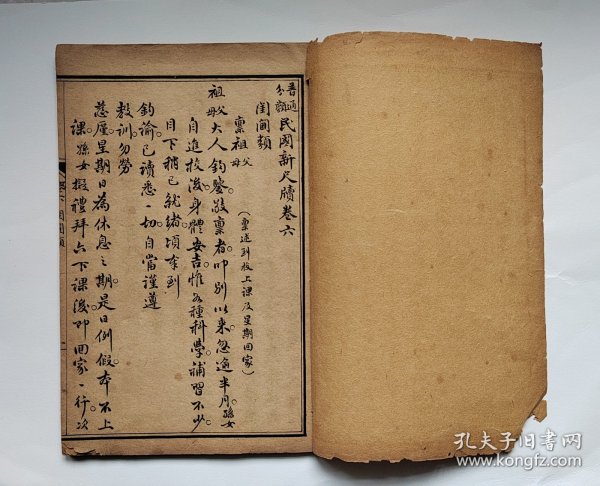 普通分類民國新尺牘卷六
閨閫類
稟祖父母（稟述到校上課及星期回家）
祖父母大人鈞鑒敬稟者叩別以來。忽逾半月。孫女
自進校後。身體安吉。惟各種科學補習不少。
目下稍已就緒。頃奉到
鈞諭。已讀悉一切。自當謹遵
教訓。勿勞
慈廑。星期日為休息之期。是日例假。本不上
課。孫女擬禮拜六下課後。即回家一行。次
卷六 閨閫類 一
孔夫子旧书网
www.kongfz.com